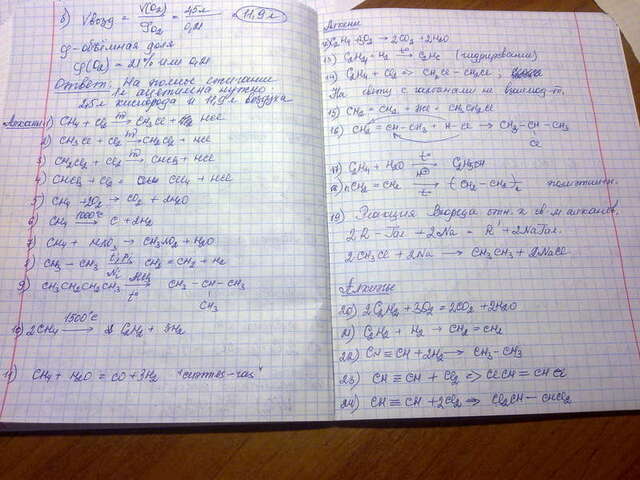 б) Vвозд = V(O2)/φO2 = 2,5л/0,21 = 11,9 л
φ - объёмная доля
φ(O2) = 21% или 0,21
Ответ: На полное сгорание
1л ацетилена нужно
2,5л кислорода и 11,9л воздуха
Алканы 1) CH4 + Cl2 → CH3Cl + HCl
2) CH3Cl + Cl2 → CH2Cl2 + HCl
3) CH2Cl2 + Cl2 → CHCl3 + HCl
4) CHCl3 + Cl2 = CCl4 + HCl
5) CH4 + 2O2 → CO2 + 2H2O
6) CH4 1000°C → C + 2H2
7) CH4 + HNO3 → CH3NO2 + H2O
8) CH3 - CH3 → CH2 = CH2 + H2
9) CH3CH2CH2CH3 AlCl3 t° → CH3 - CH - CH3
CH3
10) 2CH4 1500°C → C2H2 + 3H2
11) CH4 + H2O = CO + 3H2 "синтез-газ"
Алкены
12) C2H4 + 3O2 → 2CO2 + 2H2O
13) C2H4 + H2 t° → C2H6 (гидрирование)
14) C2H4 + Cl2 => CH2Cl - CH2Cl
На свету с алканами не взаимод-т.
15) CH2 = CH2 + HCl = CH3CH2Cl
16) CH2 = CH - CH3 + H - Cl → CH3 - CH - CH3
Cl
17) C2H4 + H2O t° → C2H5OH
18) nCH2 = CH2 t → (CH2 - CH2)n полиэтилен.
19) Реакция Вюрца отн. к св-м алканов.
2R - Гал + 2Na = R + 2NaГал.
2CH3Cl + 2Na → CH3CH3 + 2NaCl
Алкины
20) 2C2H2 + 3O2 = 2CO2 + 2H2O
21) C2H2 + H2 → CH2 = CH2
22) CH ≡ CH + 2H2 → CH3 - CH3
23) CH ≡ CH + Cl2 => ClCH = CHCl
24) CH ≡ CH + 2Cl2 => Cl2CH - CHCl2